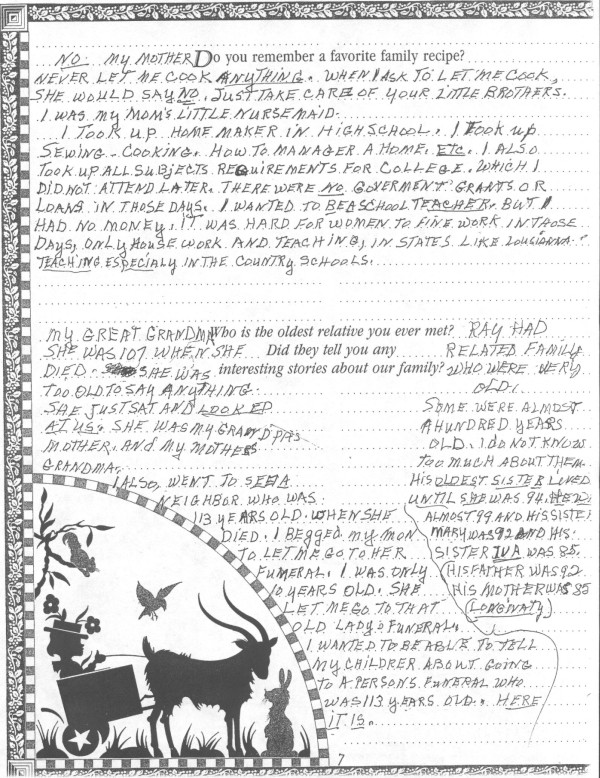 Do you remember a favorite family recipe?
NO. MY MOTHER
NEVER LET ME COOK ANYTHING. WHEN I ASK TO LET ME COOK,
SHE WOULD SAY NO. JUST TAKE CARE OF YOUR LITTLE BROTHERS.
I WAS MY MOM'S LITTLE NURSEMAID.
I TOOK UP HOME MAKER IN HIGH SCHOOL. I TOOK UP
SEWING - COOKING. HOW TO MANAGER A HOME. ETC. I ALSO
TOOK UP ALL SUBJECTS REQUIREMENTS FOR COLLEGE. WHICH I
DID NOT ATTEND LATER. THERE WERE NO GOVERMENT GRANTS OR
LOANS IN THOSE DAYS. I WANTED TO BE A SCHOOL TEACHER. BUT I
HAD NO MONEY. IT WAS HARD FOR WOMEN TO FINE WORK IN THOSE
DAYS, ONLY HOUSE WORK AND TEACHING, IN STATES LIKE LOUGIANNA.
TEACHING ESPECIALY IN THE COUNTRY SCHOOLS.
Who is the oldest relative you ever met?
Did they tell you any
interesting stories about our family?
MY GREAT GRANDMA
SHE WAS 107 WHEN SHE
DIED. SHE WAS
TOO OLD TO SAY ANYTHING.
SHE JUST SAT AND LOOKED
AT US. SHE WAS MY GRANDPA'S
MOTHER. AND MY MOTHERS
GRANDMA.
I ALSO WENT TO SEE A
NEIGHBOR WHO WAS
113 YEARS OLD WHEN SHE
DIED. I BEGGED MY MOM
TO LET ME GO TO HER
FUNERAL. I WAS ONLY
10 YEARS OLD. SHE
LET ME GO TO THAT
OLD LADY'S FUNERAL.
I WANTED TO BE ABLE TO TELL
MY CHILDREN ABOUT GOING
TO A PERSONS FUNERAL WHO
WAS 113 YEARS OLD. HERE
IT IS.
RAY HAD
RELATED FAMILY
WHO WERE VERY
OLD.
SOME WERE ALMOST
A HUNDRED YEARS
OLD. I DO NOT KNOW
TOO MUCH ABOUT THEM.
HIS OLDEST SISTER LIVED
UNTIL SHE WAS 94. HE W
ALMOST 99 AND HIS SISTER
MARY WAS 92 AND HIS
SISTER IVA WAS 85.
HIS FATHER WAS 92
HIS MOTHER WAS 85
(LONGINATY)
7